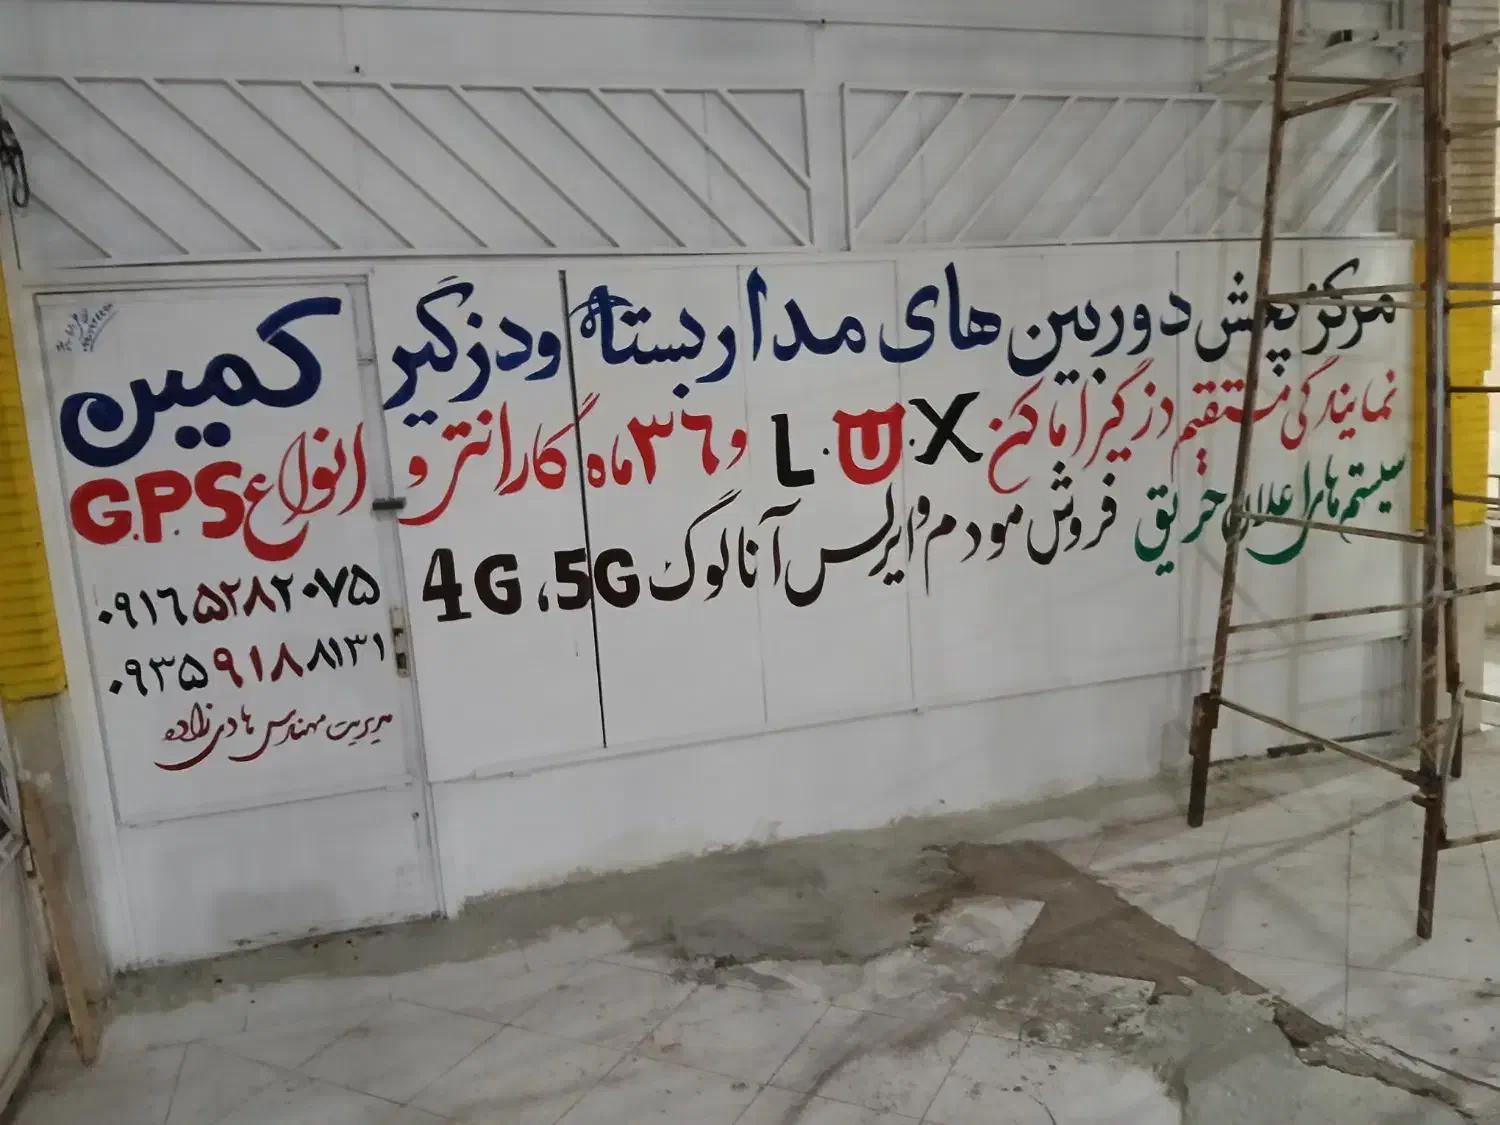 مرکز پخش دوربین های مداربسته و دزگیر کمین
نمایندگی مستقیم دزگیر اماکن L.U.X و ٣٦ ماه گارانتر و انواع G.P.S
سیستم هار اعلان حریق فروش مودم وایرلس آنالوگ 4G، 5G
۰۹۱٦۵۲۸۲۰۷۵
۰۹۳۵۹۱۸۸۱۳۱
مدیریت مهندس هادی زاده